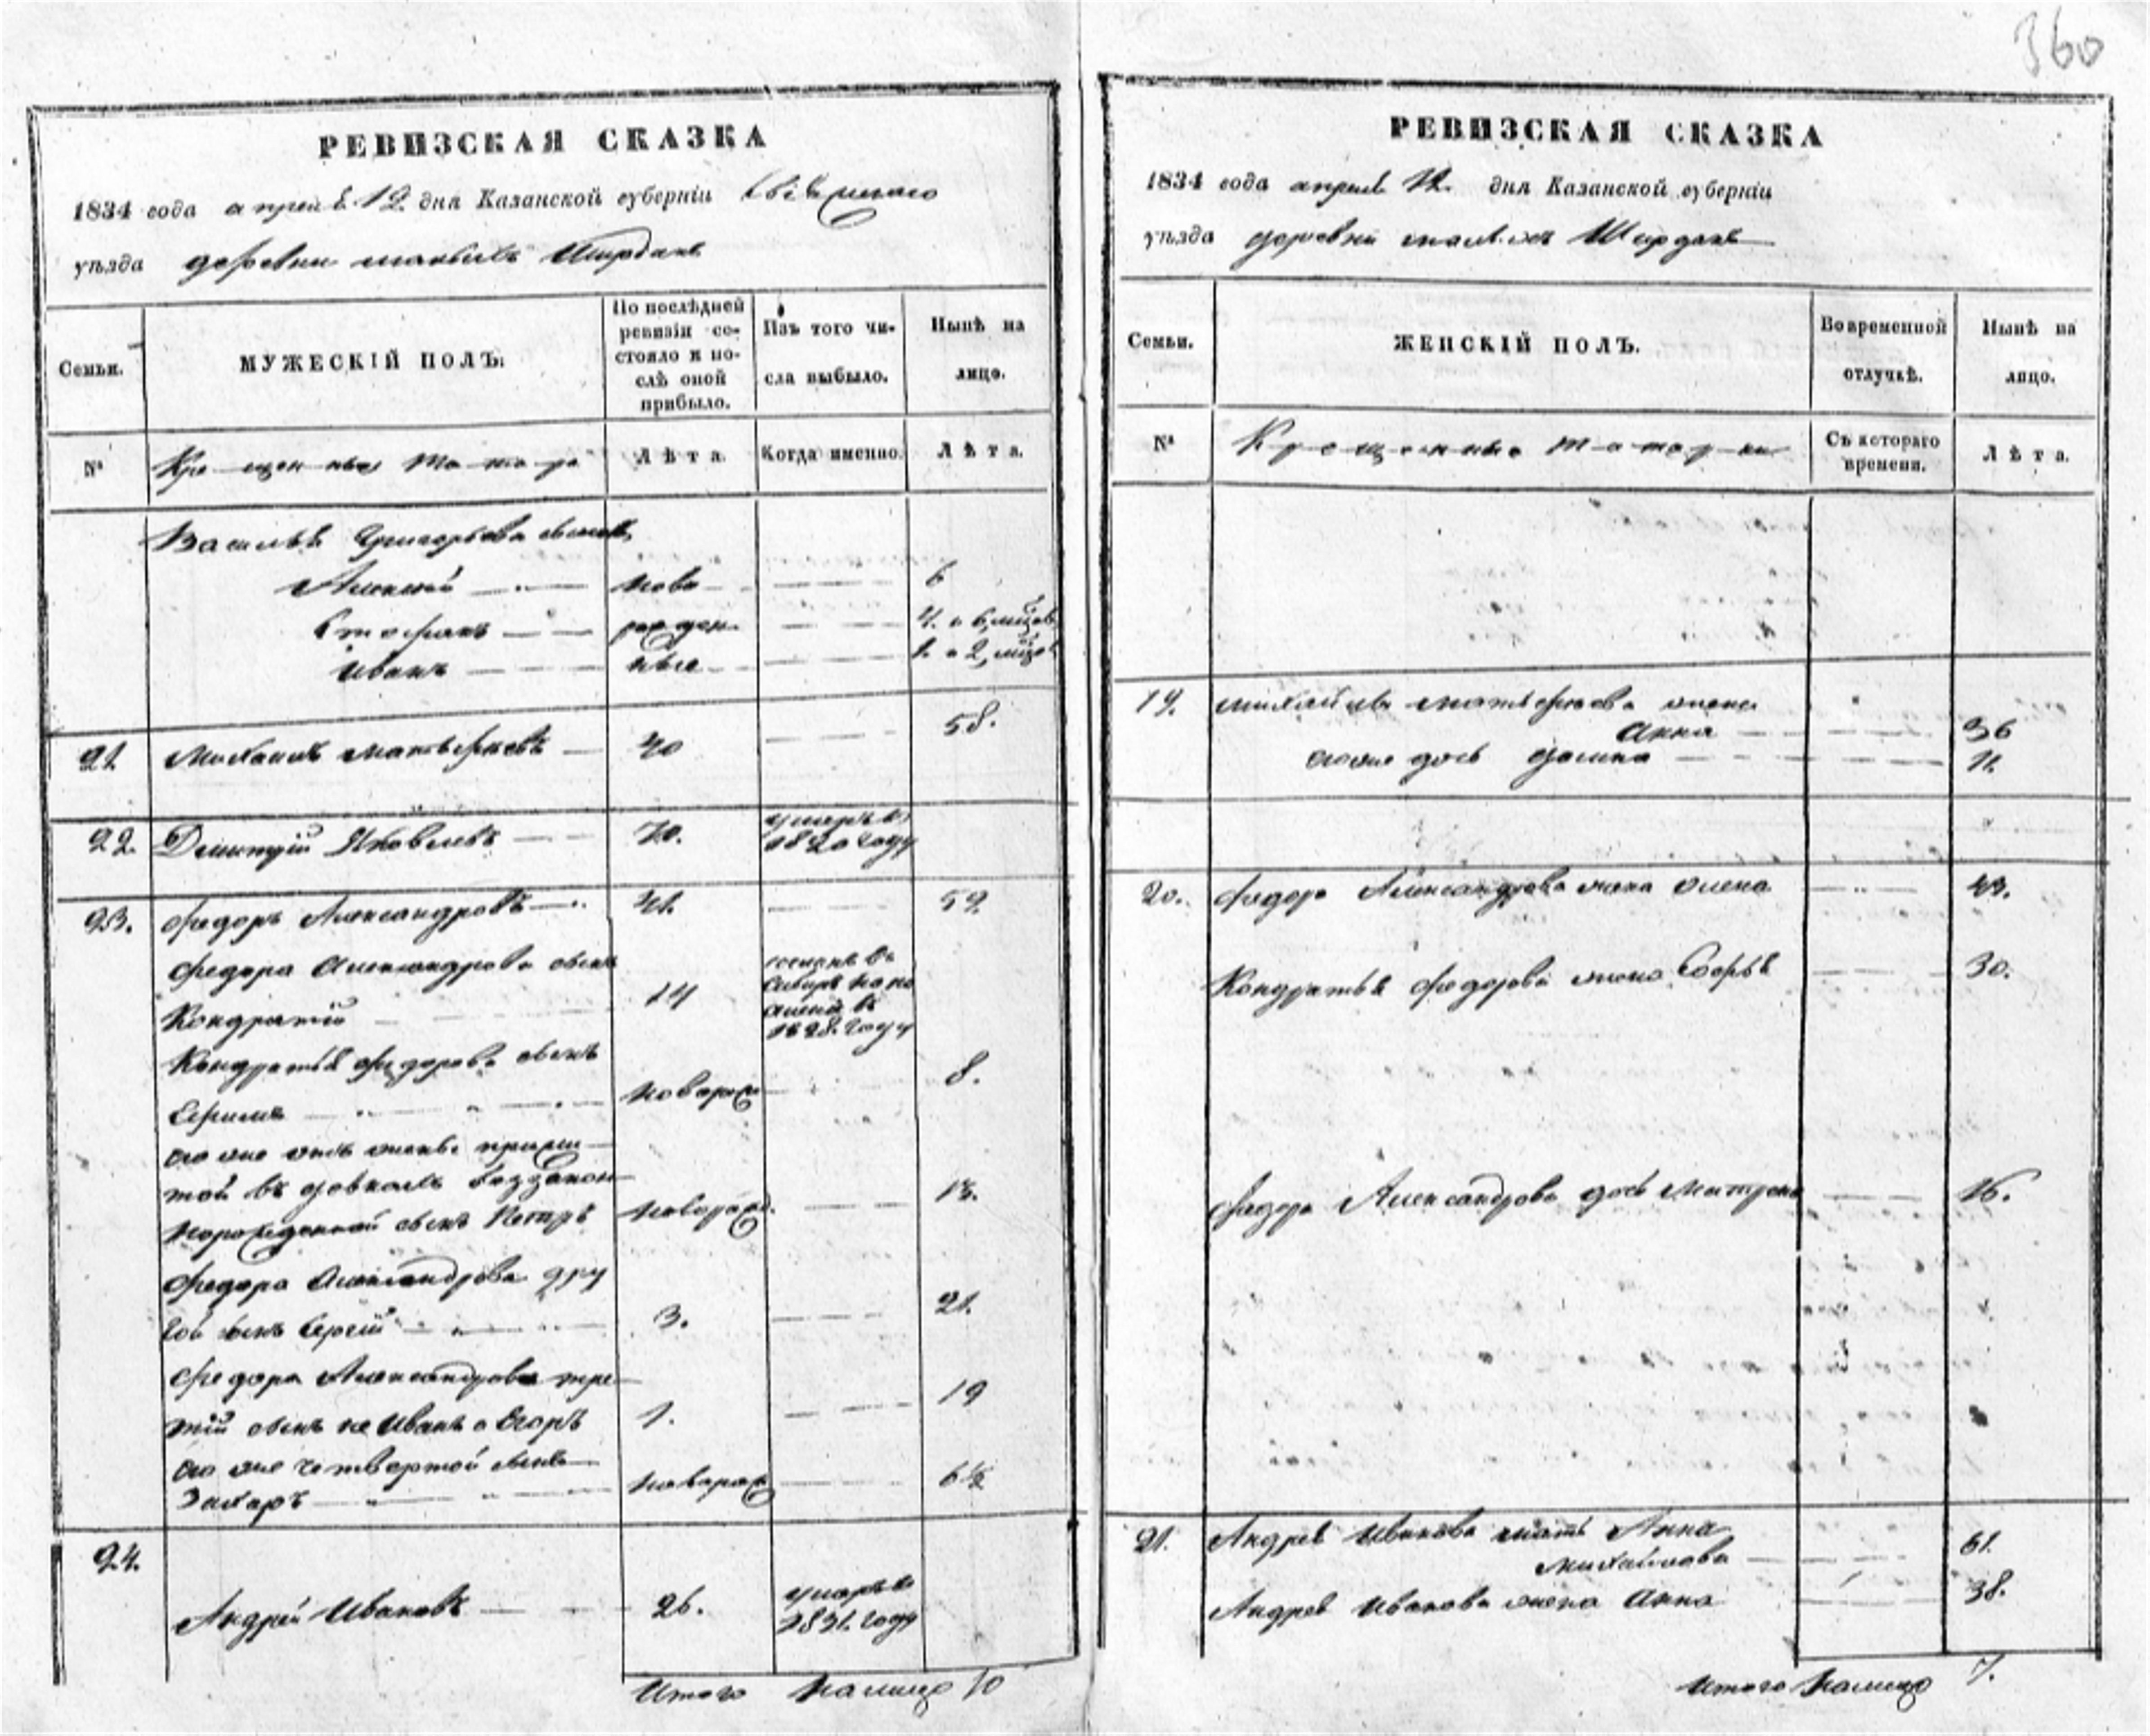 360
РЕВИЗСКАЯ СКАЗКА
1834 года апреля 12 дня Казанской губерніи Свіяжскаго
уѣзда деревни малыхъ Ширданъ
Семьи.
МУЖЕСКІЙ ПОЛЪ.
По послѣдней ревизіи состояло и послѣ оной прибыло.
Изъ того числа выбыло.
Нынѣ на лицо.
№
Крещенные татара
Лѣта.
Когда именно.
Лѣта.
Василья Григорьева сыновья
Алексей ново 6
Стефанъ рожден 4. и 6, мцовъ
Иванъ ные 1. и 2, мцовъ
21 Михаилъ Матвѣевъ 40 58.
22. Дмитрій Яковлевъ 70. умеръ въ 1820 году
23. Федоръ Александровъ 41. 59.
Федора Александрова сынъ
Кондратій 14 сосланъ въ Сибирь на поселенія въ 1828. году
Кондратья Федорова сынъ
Ефимъ новорож 8.
его же отъ жены прижи
той въ незаконнорожденной сынъ Петръ новорож. 13.
Федора Александрова дру
гой сынъ Сергей 3. 21.
Федора Александрова тре
тій сынъ не Иванъ а Егоръ 1. 19
его же четвертой сынъ
Захаръ новорож 6½
24.
Андрей Ивановъ 26. умеръ въ 1831. году
Итого налицо 10
РЕВИЗСКАЯ СКАЗКА
1834 года апреля 12. дня Казанской губерніи
уѣзда деревни малыхъ Ширданъ
Семьи.
ЖЕНСКІЙ ПОЛЪ.
Во временной отлучкѣ.
Нынѣ на лицо.
№
Крещенные татарки
Съ котораго времени.
Лѣта.
19. Михайлы Матвѣева жена
Анна 36
его же дочь 11.
20. Федора Александрова жена 43.
Кондратья Федорова жена Софья 30.
Федора Александрова дочь Матрена 16.
21. Андрея Иванова мать Анна
Михайлова 61.
Андрея Иванова жена Анна 38.
Итого налицо 7.